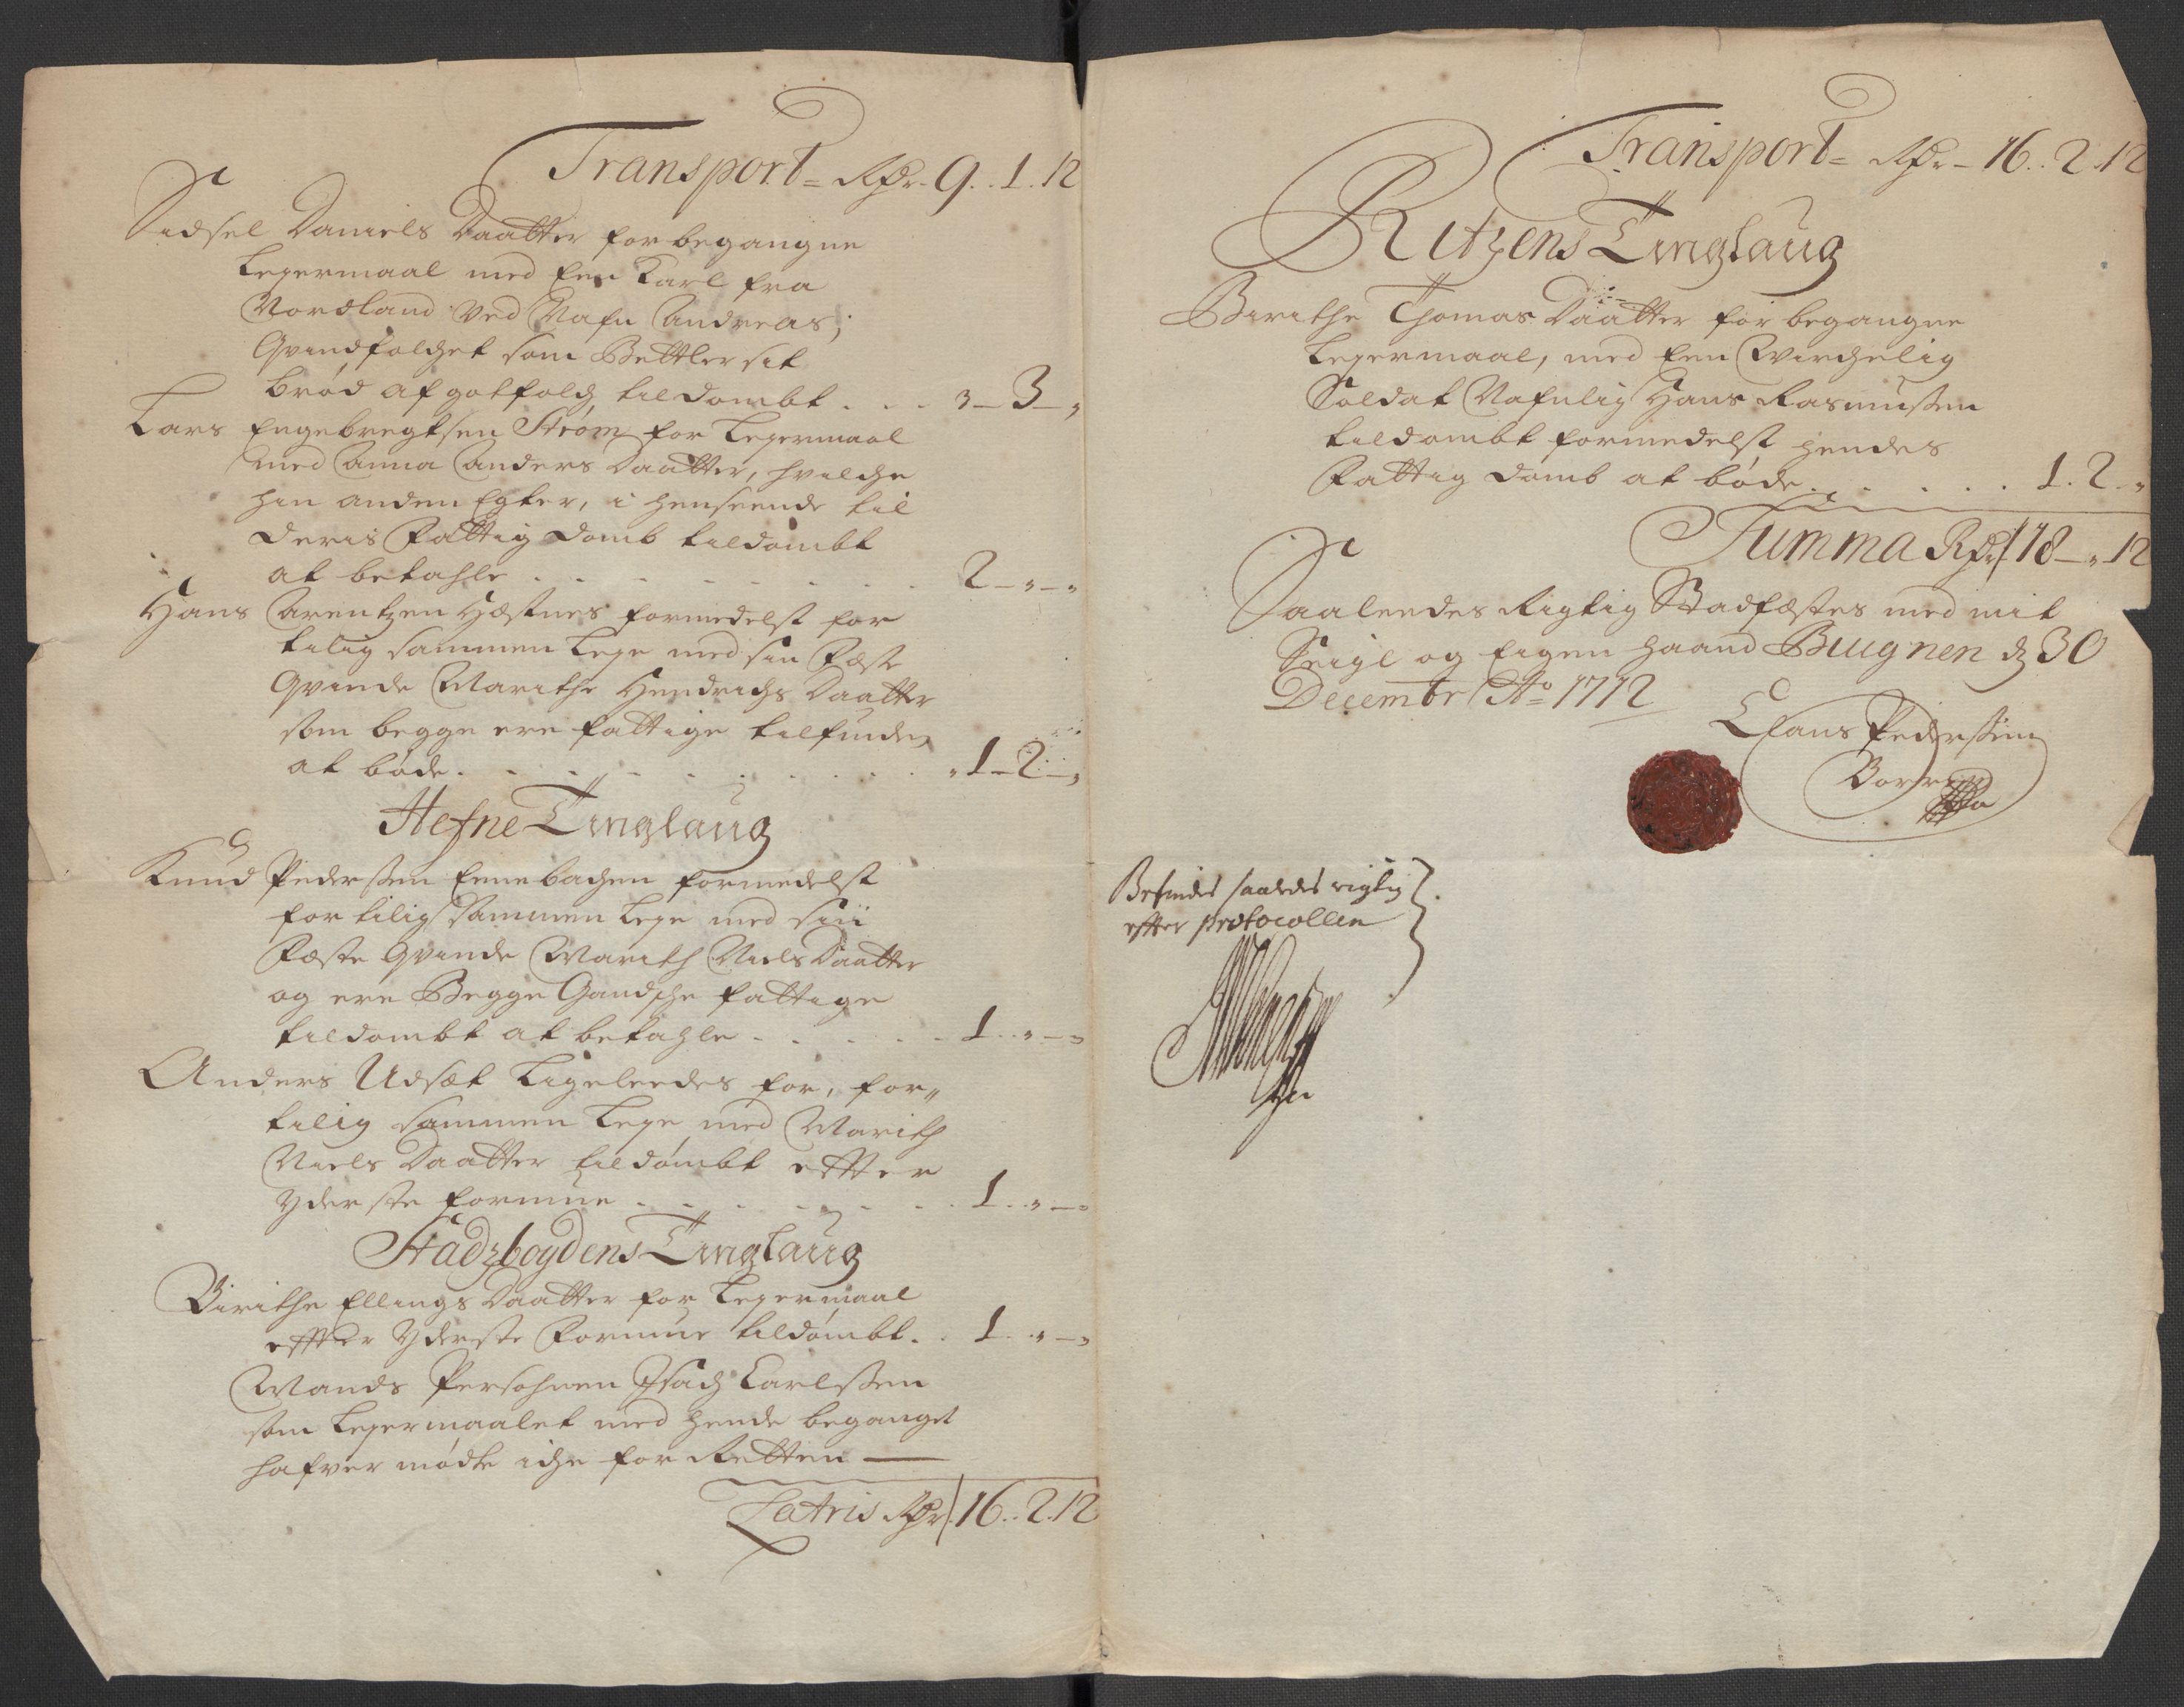 Transport = Rdr. 9..1.12
Sidsel Daniels Daatter for begangne
Leyermaal med Een Karl fra
Nordland ved Nafn Andreas,
Qvindfolchet som Bettler sit
brød af gotfolch tildømbt . . . „ - 3 - „
Lars Engebregtsen Strøm for Leyermaal
med Anna Anders Daatter, hvilche
hin anden Egter, i henseende til
deris Fattig domb tildømbt
at betahle . . . . . . . . 2 - „ - „
Hans Arentzen Hæstnes formedelst for
tilig sammen Leye med sin Fæste
Qvinde Marithe Hendrichs Daatter
som begge ere fattige tilfunden
at bøde . . . . . . . . . „ 1 - 2 - „
Hefne Tinglaug
Knud Pedersen Ennebachen formedelst
for tilig sammen Leye med sin
Fæste Qvinde Marith Niels Daatter
og ere Begge Gandsche fattige
tildømbt at betahle . . . . . 1 .. „ - „
Anders Udsæt Ligeleedes for, for„
tilig sammen Leye med Marith
Niels Daatter tildømbt effter
yderste formue . . . . . . 1 .. „ - „
Stadzboydens Tinglaug
Birithe Ellings Daatter for Leyermaal
effter yderste Formue tildømbt . . 1 .. „ - „
Mands Persohnen Isach Carlssen
som Leyermaalet med hende beganget
hafver mødte iche for Retten —
Latris Rdr 16..2.12
Transport = Rdr - 16..2.12
Ritzens Tinglaug
Birithe Thomas Daatter for begangne
Leyermaal, med Een Wirchelig
Soldat Nafnlig Hans Rasmussen
tildømbt formedelst hendes
Fattig domb at bøde . . . . . 1.2..„
Summa Rdr 18 - „ 12
Saaleedes Rigtig Stadfæstes med mit
Seigl og Eigen haand Biugnen d 30
Decembr Ao 1712
Claus Pederssen
Befindes saaledes rigtig
efter protocollen